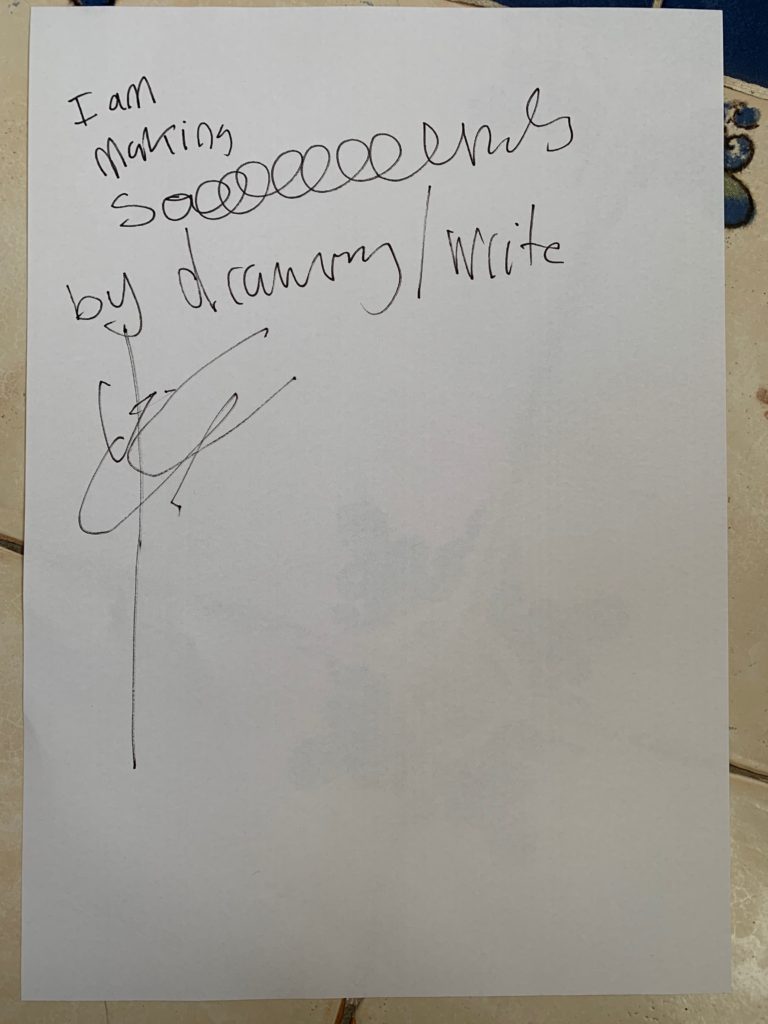 I am
making
Sooooooooounds
by drawing/write